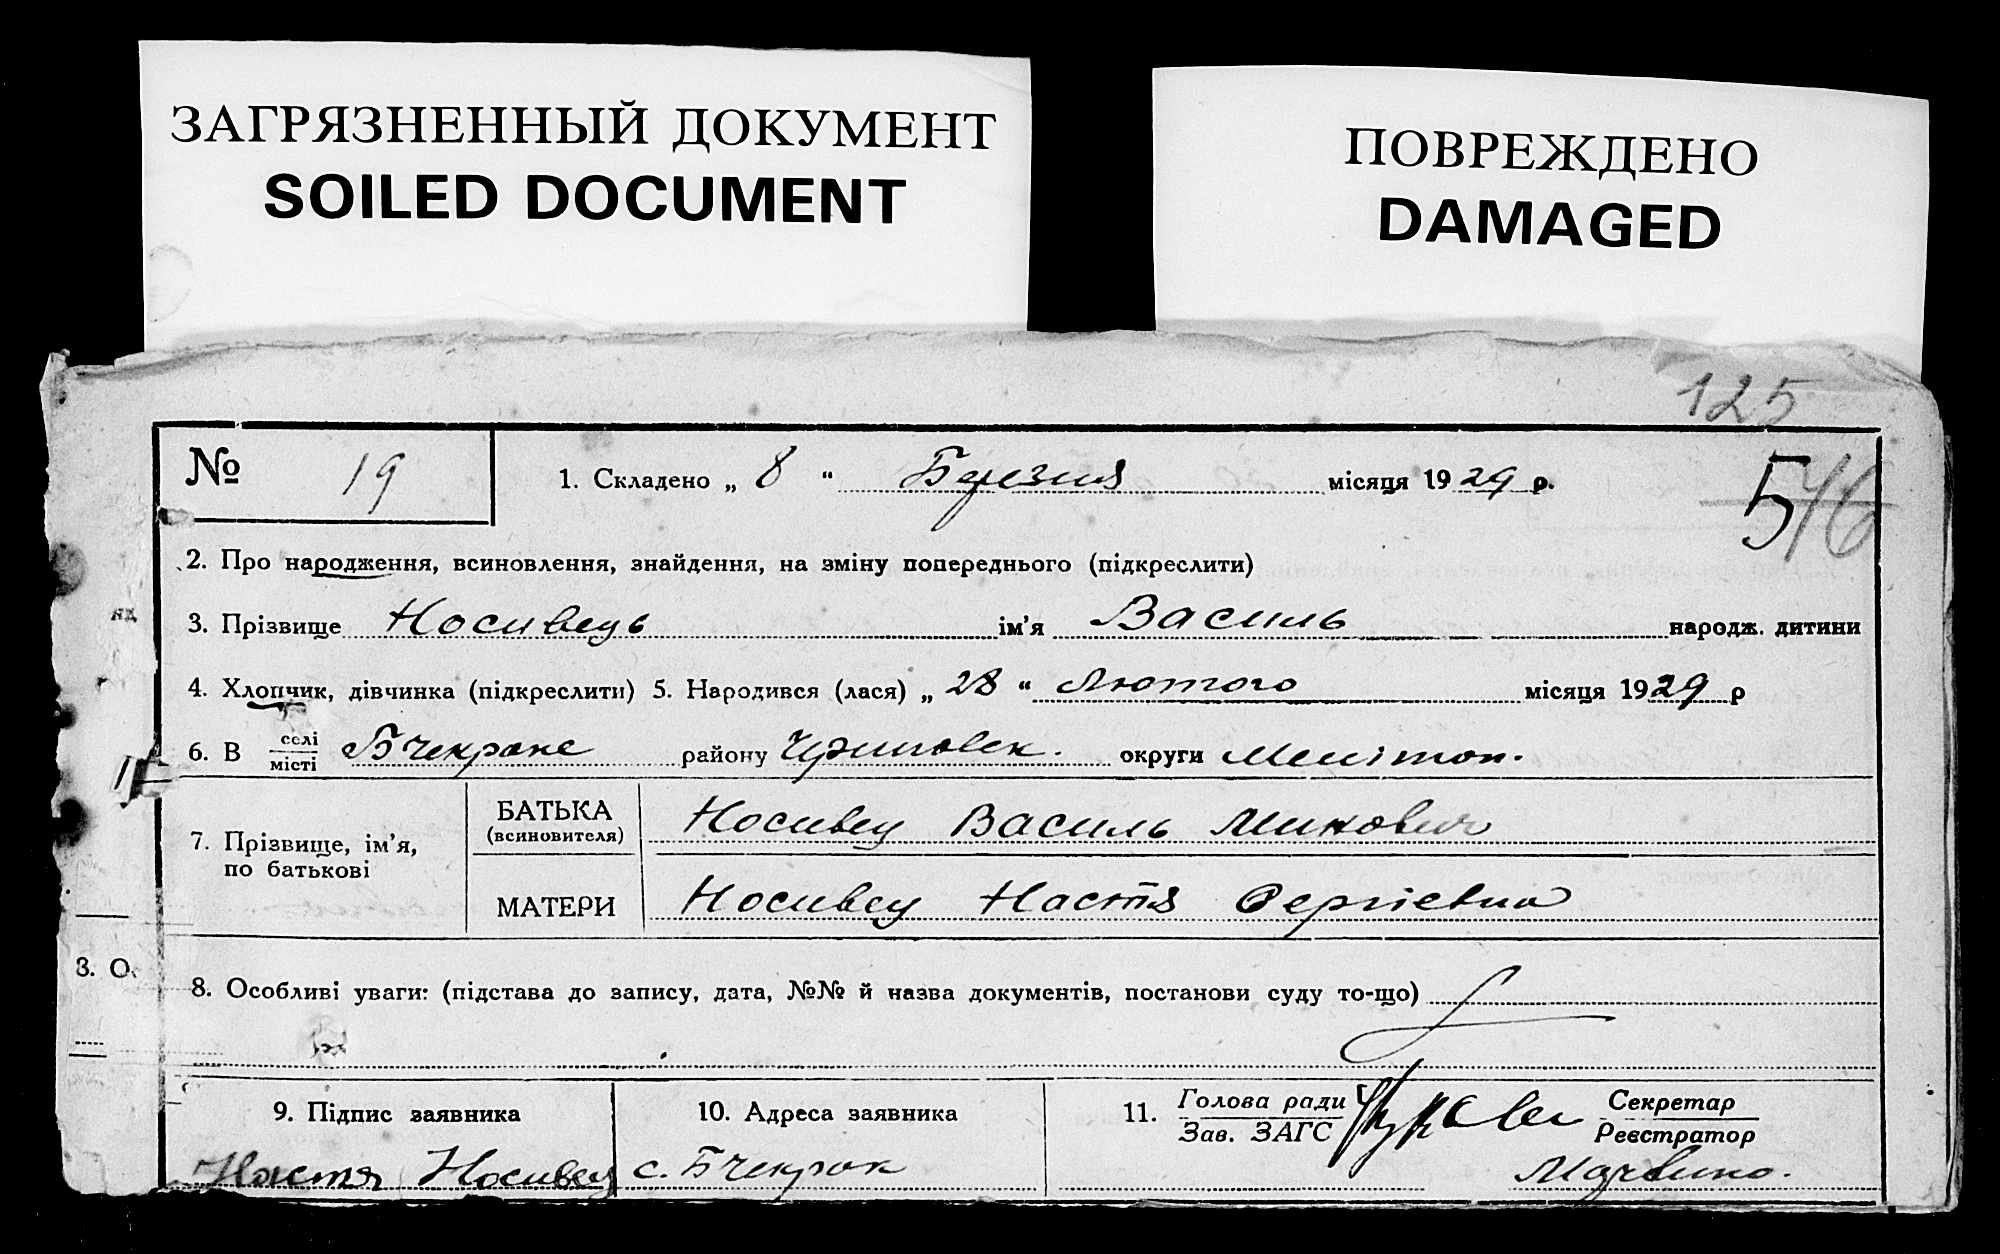 ЗАГРЯЗНЕННЫЙ ДОКУМЕНТ
SOILED DOCUMENT
ПОВРЕЖДЕНО
DAMAGED
125
№ 19 1. Складено „ 8 “ Березня місяця 1929 р.
5
2. Про народження, всиновлення, знайдення, на зміну попереднього (підкреслити)
3. Прізвище Носивець ім'я Василь народж. дитини
4. Хлопчик, дівчинка (підкреслити) 5. Народився (лася) „ 28 “ Лютого місяця 1929 р
6. В селі місті Бчекраке району округи Мелітоп.
7. Прізвище, ім'я, по батькові
БАТЬКА (всиновителя) Носивец Василь
МАТЕРИ Носивец Настя Сергієвна
З. О.
8. Особливі уваги: (підстава до запису, дата, №№ й назва документів, постанови суду то-що)
9. Підпис заявника
Настя Носивец
10. Адреса заявника
с. Бчекрак
11. Голова ради Зав. ЗАГС
Секретар Реєстратор